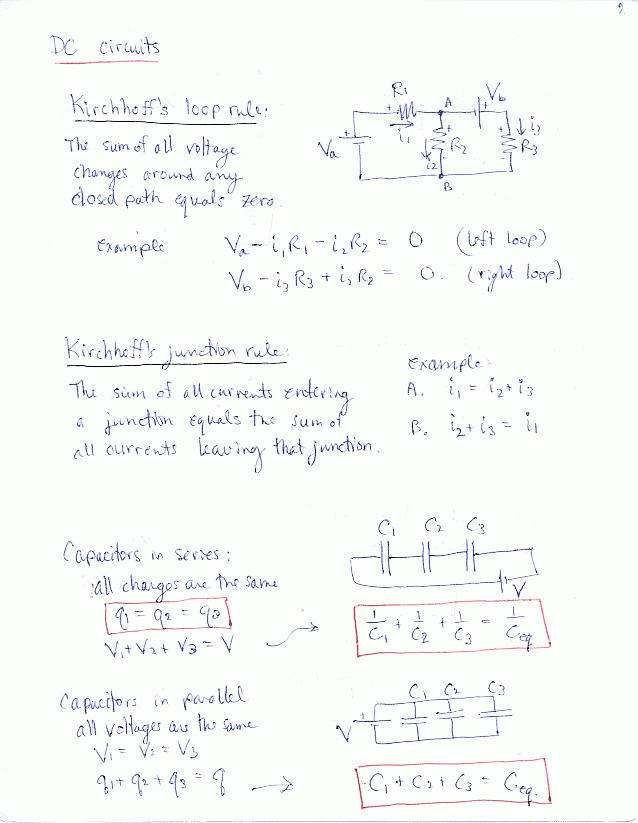 9.
DC circuits
Kirchhoff's loop rule:
The sum of all voltage
changes around any
closed path equals zero.
R1
A
Vb
Va
+
i1
i2
R2
i3
R3
B
Example
Va - i1R1 - i2R2 = 0 (left loop)
Vb - i3R3 + i2R2 = 0. (right loop)
Kirchhoff's junction rule:
The sum of all currents entering
a junction equals the sum of
all currents leaving that junction.
example:
A. i1 = i2 + i3
B. i2 + i3 = i1
Capacitors in series:
all charges are the same
q1 = q2 = q3
V1 + V2 + V3 = V
C1 C2 C3
V
1/C1 + 1/C2 + 1/C3 = 1/Ceq
Capacitors in parallel
all voltages are the same
V1 = V2 = V3
q1 + q2 + q3 = q
C1 C2 C3
V +
C1 + C2 + C3 = Ceq.